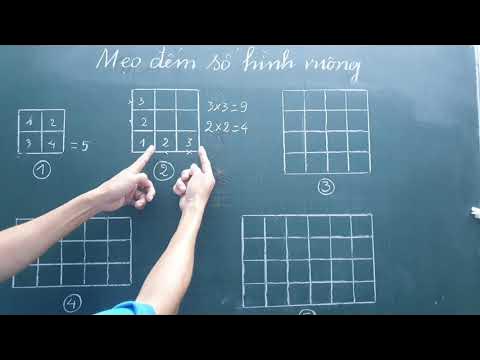 Mẹo đếm số hình vuông
1 2
3 4
= 5
①
3
2
1 2 3
3×3=9
2×2=4
②
③
④